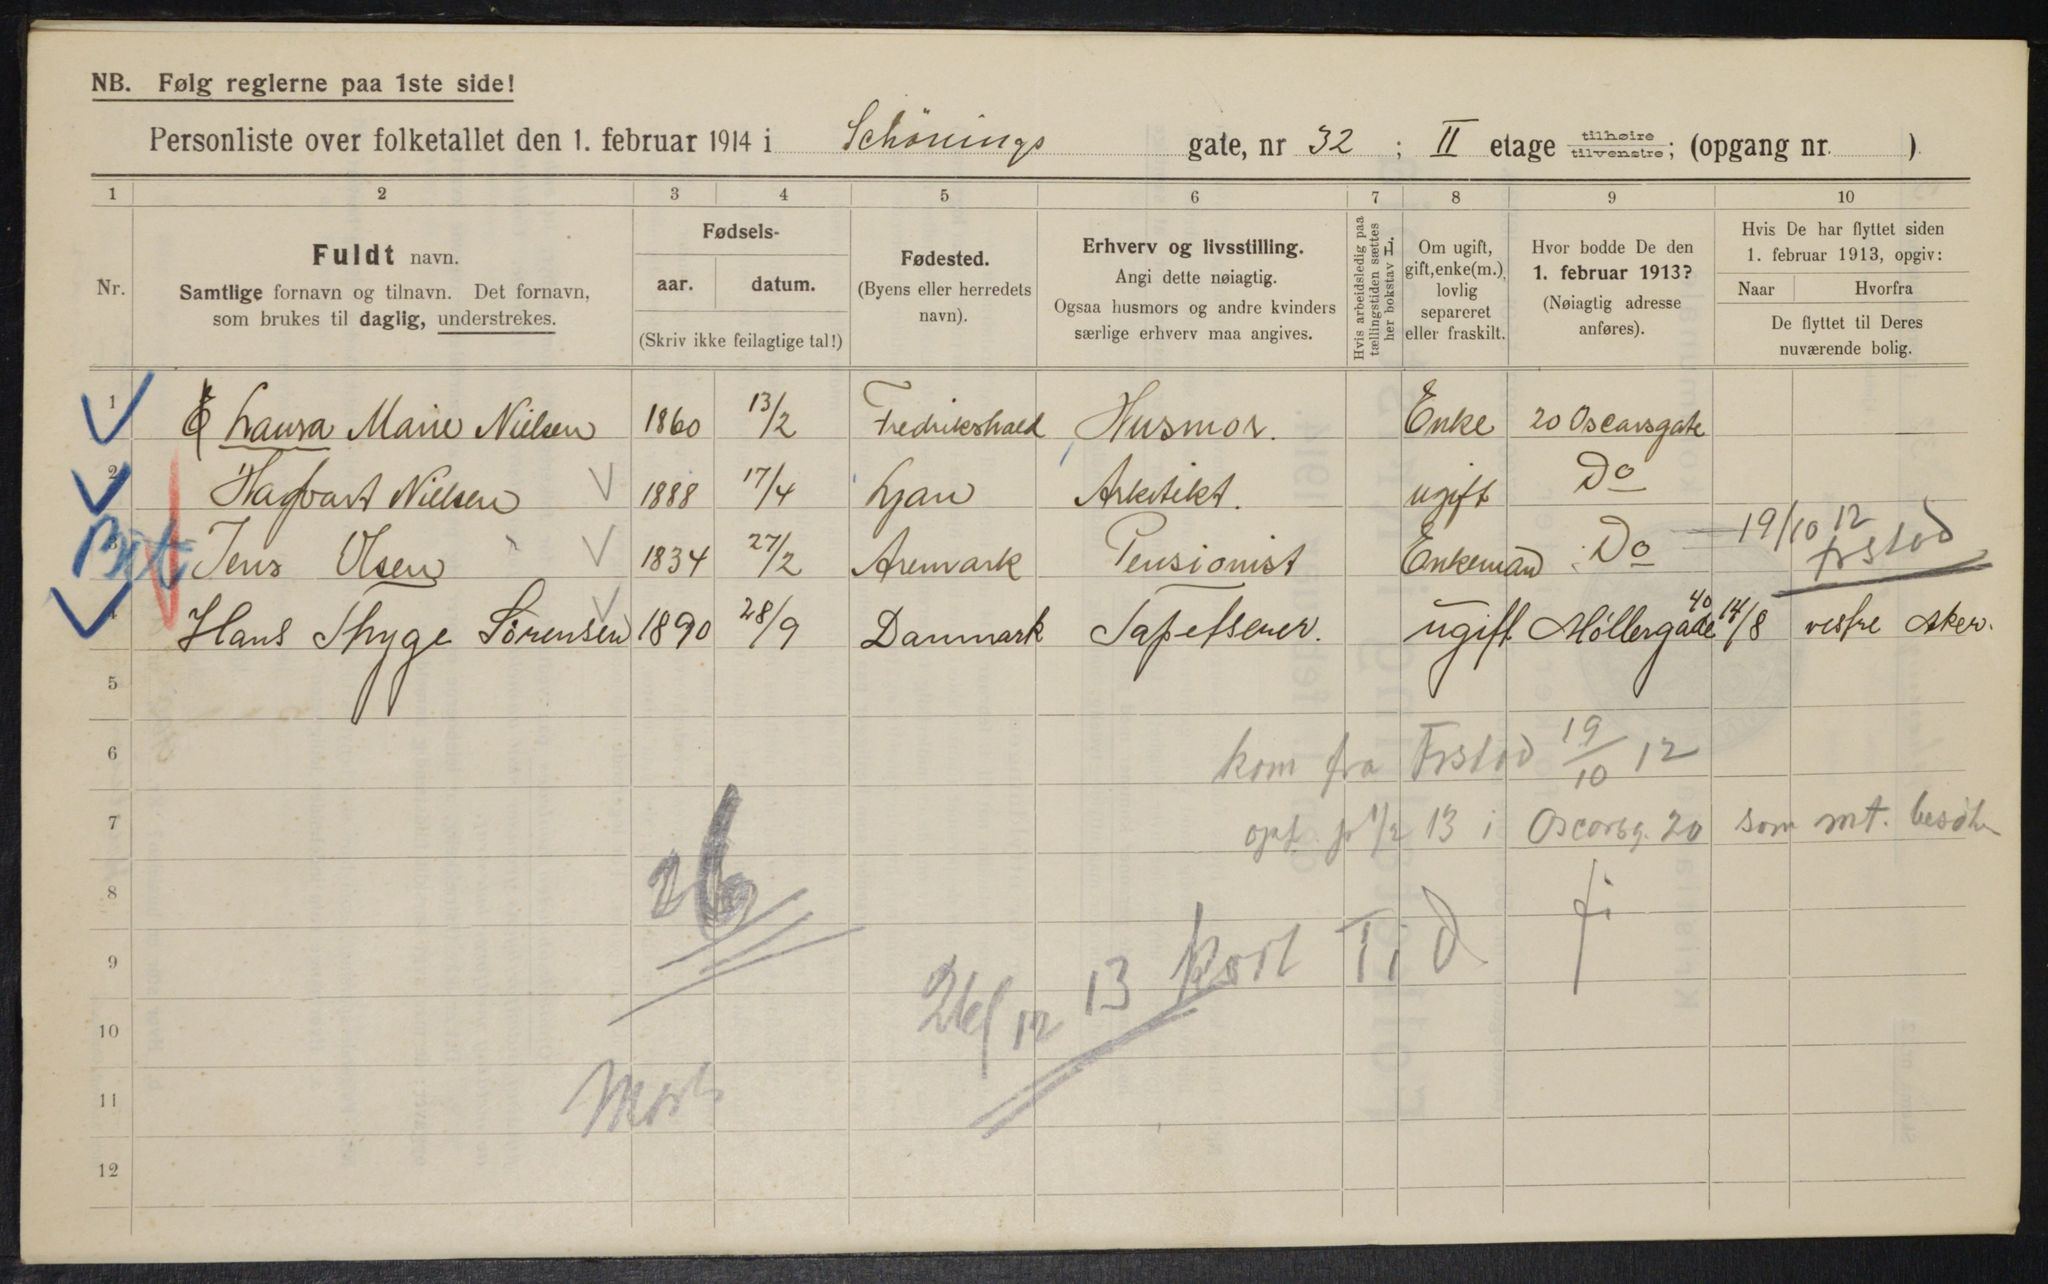 NB. Følg reglerne paa 1ste side!
Personliste over folketallet den 1. februar 1914 i Schönings gate, nr 32 ; II etage tilhøire/tilvenstre; (opgang nr. )
1 2 3 4 5 6 7 8 9 10
Nr.
Fuldt navn.
Samtlige fornavn og tilnavn. Det fornavn,
som brukes til daglig, understrekes.
Fødsels-
aar. datum.
(Skriv ikke feilagtige tal!)
Fødested.
(Byens eller herredets
navn).
Erhverv og livsstilling.
Angi dette nøiagtig.
Ogsaa husmors og andre kvinders
særlige erhverv maa angives.
Hvis arbeidsledig paa
tællingstiden sættes
her bokstav L.
Om ugift,
gift, enke(m.),
lovlig
separeret
eller fraskilt.
Hvor bodde De den
1. februar 1913?
(Nøiagtig adresse
anføres).
Hvis De har flyttet siden
1. februar 1913, opgiv:
Naar Hvorfra
De flyttet til Deres
nuværende bolig.
1 Laura Marie Nielsen 1860 13/2 Fredrikshald Husmor. Enke 20 Oscarsgate
2 Hagbart Nielsen 1888 17/4 Ljan Arkitekt. ugift Do
3 Jens Olsen 1834 27/2 Aremark Pensionist Enkemand Do 19/10 12 Frstad
4 Hans Thyge Sörensen 1890 28/9 Danmark Tapetserer. ugift Møllergade 40 14/8 vestre Aker.
5
6 kom fra Frstad 19/10 12
7 opf. p 1/2 13 i Oscarsg. 20 som mt. besök
8 26
9 26/12 13 kort Tid
10
11
12